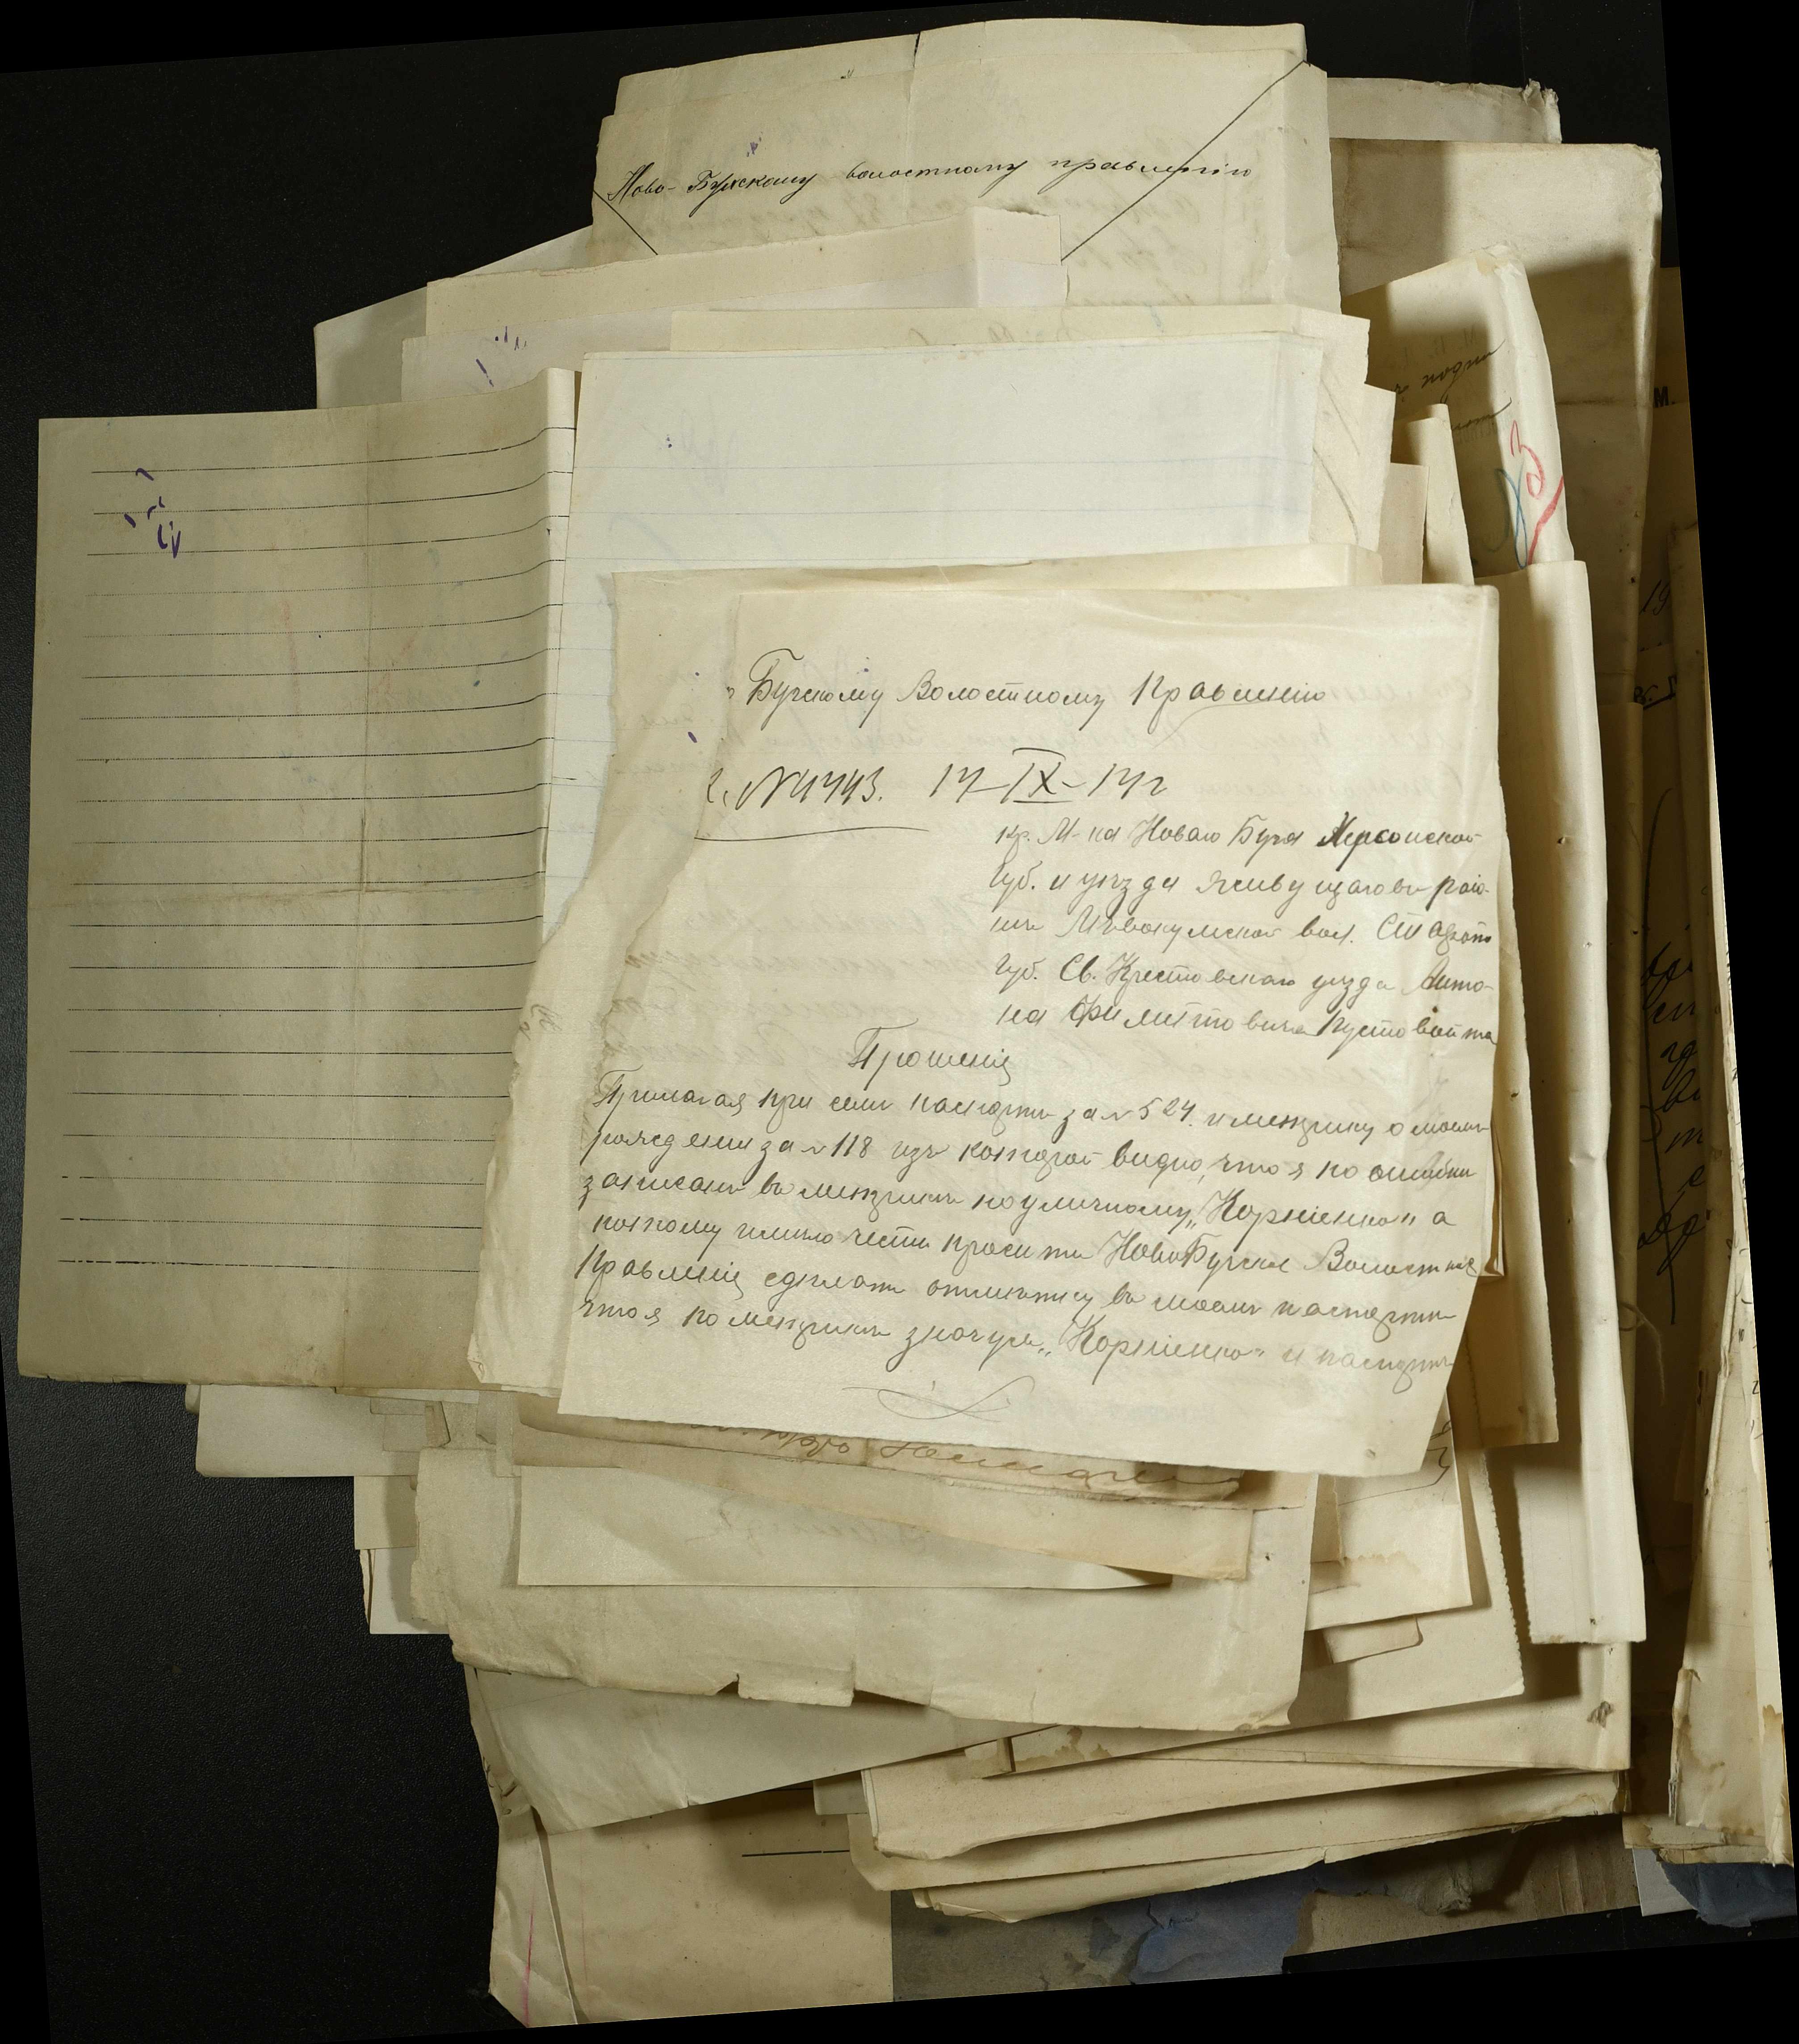 Ново-Бугскому волостному правленію
Бугскому Волостному Правленію
№ 4743. 17-IX-17 г
кр. М-ка Новаго Буга Херсонской
губ. и уѣзда живущаго въ раіо-
нѣ Лѣвокумской вол. Ставроп
губ. Св. Крестовскаго уѣзда Анто-
на Филиповича Пустовойта
Прошеніе
Прилагая при семъ паспортъ за № 524. и метрику о моемъ
рождении за № 118 изъ которой видно, что я по ошибки
записанъ въ метрикѣ по уличному „Корніенко" а
потому имѣю честь просить НовоБугское Волостное
Правленіе сдѣлать отмѣтку въ моемъ паспортѣ
что я по метрикѣ значусь „Корніенко" и паспортъ